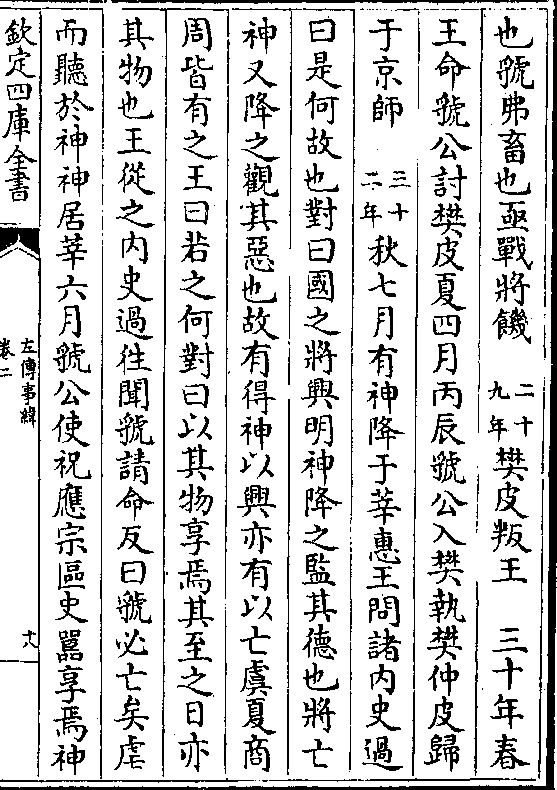 也虢弗畜也亟戰將饑　二十九年樊皮叛王　三十年春
王命虢公討樊皮夏四月丙辰虢公入樊執樊仲皮歸
于京師　三十二年秋七月有神降于莘惠王問諸内史過
曰是何故也對曰國之將興明神降之監其德也將亡
神又降之觀其惡也故有得神以興亦有以亡虞夏商
周皆有之王曰若之何對曰以其物享焉其至之日亦
其物也王從之内史過往聞虢請命反曰虢必亡矣虐
而聽於神神居莘六月虢公使祝應宗區史嚚享焉神
欽定四庫全書
左傳事緯
卷二
十八